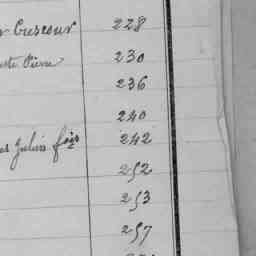 Cuscour 228
Pierre 230
236
240
Julien fois 242
252
253
257